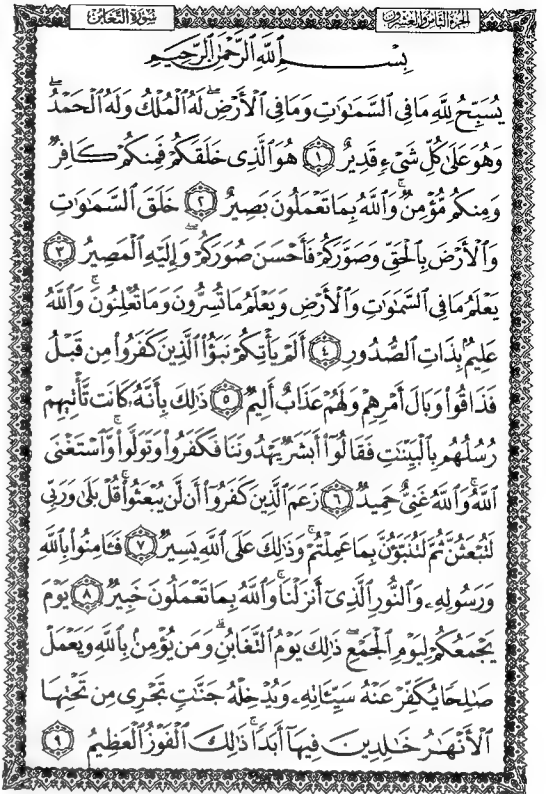 الجزء الثامن والعشرون
سورة التغابن
بِسْمِ ٱللَّهِ ٱلرَّحْمَٰنِ ٱلرَّحِيمِ
يُسَبِّحُ لِلَّهِ مَا فِى ٱلسَّمَٰوَٰتِ وَمَا فِى ٱلْأَرْضِۖ لَهُ ٱلْمُلْكُ وَلَهُ ٱلْحَمْدُۖ
وَهُوَ عَلَىٰ كُلِّ شَىْءٍ قَدِيرٌ ١ هُوَ ٱلَّذِى خَلَقَكُمْ فَمِنكُمْ كَافِرٌ
وَمِنكُم مُّؤْمِنٌۚ وَٱللَّهُ بِمَا تَعْمَلُونَ بَصِيرٌ ٢ خَلَقَ ٱلسَّمَٰوَٰتِ
وَٱلْأَرْضَ بِٱلْحَقِّ وَصَوَّرَكُمْ فَأَحْسَنَ صُوَرَكُمْۖ وَإِلَيْهِ ٱلْمَصِيرُ ٣
يَعْلَمُ مَا فِى ٱلسَّمَٰوَٰتِ وَٱلْأَرْضِ وَيَعْلَمُ مَا تُسِرُّونَ وَمَا تُعْلِنُونَۚ وَٱللَّهُ
عَلِيمٌۢ بِذَاتِ ٱلصُّدُورِ ٤ أَلَمْ يَأْتِكُمْ نَبَؤُا۟ ٱلَّذِينَ كَفَرُوا۟ مِن قَبْلُ
فَذَاقُوا۟ وَبَالَ أَمْرِهِمْ وَلَهُمْ عَذَابٌ أَلِيمٌ ٥ ذَٰلِكَ بِأَنَّهُۥ كَانَت تَّأْتِيهِمْ
رُسُلُهُم بِٱلْبَيِّنَٰتِ فَقَالُوٓا۟ أَبَشَرٌ يَهْدُونَنَا فَكَفَرُوا۟ وَتَوَلَّوا۟ۚ وَّٱسْتَغْنَى
ٱللَّهُۚ وَٱللَّهُ غَنِىٌّ حَمِيدٌ ٦ زَعَمَ ٱلَّذِينَ كَفَرُوٓا۟ أَن لَّن يُبْعَثُوا۟ۚ قُلْ بَلَىٰ وَرَبِّى
لَتُبْعَثُنَّ ثُمَّ لَتُنَبَّؤُنَّ بِمَا عَمِلْتُمْۚ وَذَٰلِكَ عَلَى ٱللَّهِ يَسِيرٌ ٧ فَـَٔامِنُوا۟ بِٱللَّهِ
وَرَسُولِهِۦ وَٱلنُّورِ ٱلَّذِىٓ أَنزَلْنَاۚ وَٱللَّهُ بِمَا تَعْمَلُونَ خَبِيرٌ ٨ يَوْمَ
يَجْمَعُكُمْ لِيَوْمِ ٱلْجَمْعِۖ ذَٰلِكَ يَوْمُ ٱلتَّغَابُنِۗ وَمَن يُؤْمِنۢ بِٱللَّهِ وَيَعْمَلْ
صَٰلِحًا يُكَفِّرْ عَنْهُ سَيِّـَٔاتِهِۦ وَيُدْخِلْهُ جَنَّٰتٍ تَجْرِى مِن تَحْتِهَا
ٱلْأَنْهَٰرُ خَٰلِدِينَ فِيهَآ أَبَدًاۚ ذَٰلِكَ ٱلْفَوْزُ ٱلْعَظِيمُ ٩